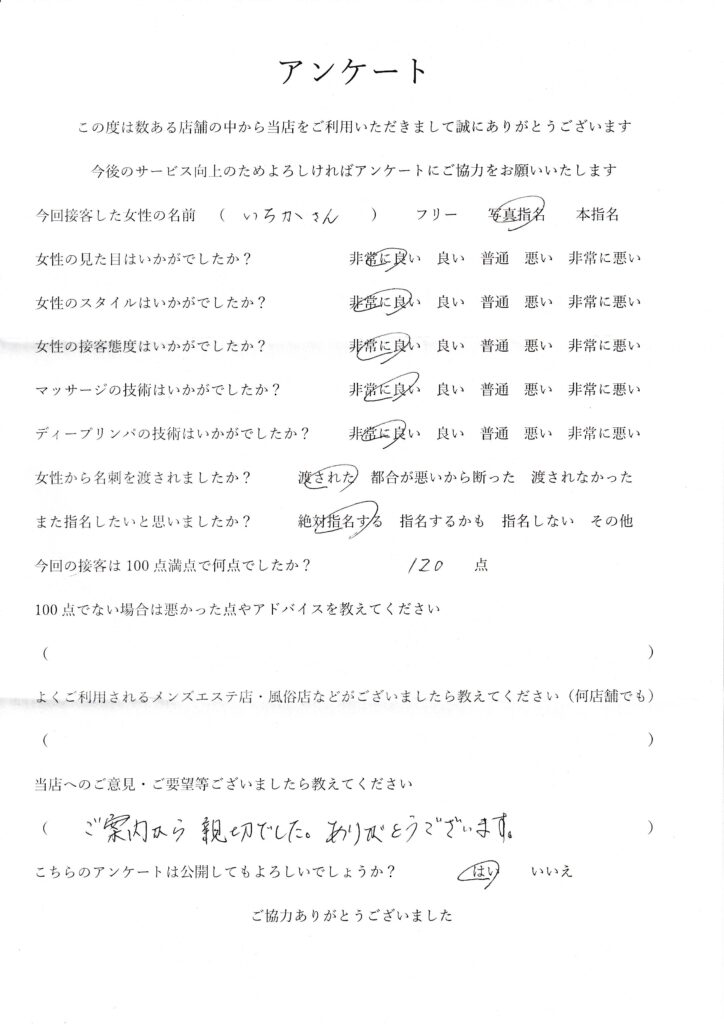 アンケート
この度は数ある店舗の中から当店をご利用いただきまして誠にありがとうございます
今後のサービス向上のためよろしければアンケートにご協力をお願いいたします
今回接客した女性の名前 ( いちかさん ) フリー 写真指名 本指名
女性の見た目はいかがでしたか? 非常に良い 良い 普通 悪い 非常に悪い
女性のスタイルはいかがでしたか? 非常に良い 良い 普通 悪い 非常に悪い
女性の接客態度はいかがでしたか? 非常に良い 良い 普通 悪い 非常に悪い
マッサージの技術はいかがでしたか? 非常に良い 良い 普通 悪い 非常に悪い
ディープリンパの技術はいかがでしたか? 非常に良い 良い 普通 悪い 非常に悪い
女性から名刺を渡されましたか? 渡された 都合が悪いから断った 渡されなかった
また指名したいと思いましたか? 絶対指名する 指名するかも 指名しない その他
今回の接客は100点満点で何点でしたか? 120 点
100点でない場合は悪かった点やアドバイスを教えてください
( )
よくご利用されるメンズエステ店・風俗店などがございましたら教えてください(何店舗でも)
( )
当店へのご意見・ご要望等ございましたら教えてください
( ご案内から親切でした。ありがとうございます。 )
こちらのアンケートは公開してもよろしいでしょうか? はい いいえ
ご協力ありがとうございました